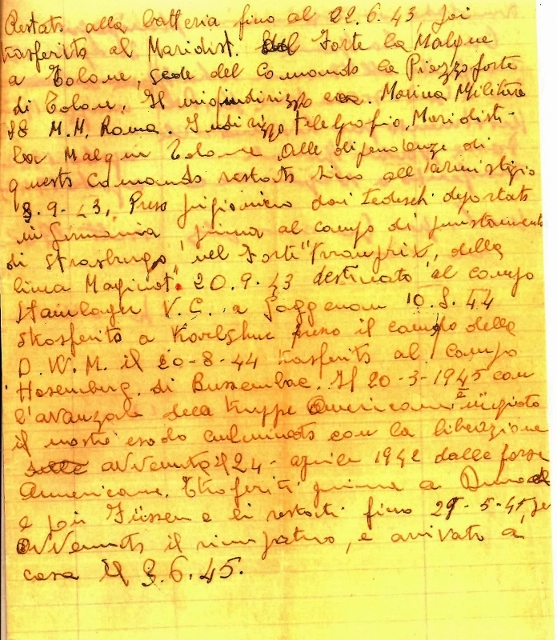 Restato alla batteria fino al 22.6.43 poi
trasferito al Maridist. Forte la Malgue
a Tolone, sede del Comando la Piazzaforte
di Tolone. Il mio indirizzo era. Marina Militare
M.M. Roma. Indirizzo telegrafico, Maridist-
La Malgue Tolone, alle dipendenze di
questo Comando restato sino all'armistizio
8.9-43, Preso prigioniero dai tedeschi deportato
in Germania prima al campo di smistamento
di Strasburgo nel Forte "Kronprix, della
linea Maginot". 20.9.43 destinato al campo
Stamlager V.C. a Gaggenau 10.8.44
trasferito a il campo della
D.W.M. il 20-8-44 trasferito al Campo
di Il 20-3-1945 con
l'avanzata delle truppe Americane iniziato
il nostro esodo culminato con la liberazione
avvenuta il 24-aprile 1942 dalle forze
Americane. Trasferiti prima a
e poi Füssen e li restati fino 29-5-45,
avvenuto il rimpatrio, e arrivato a
casa il 3.6.45.